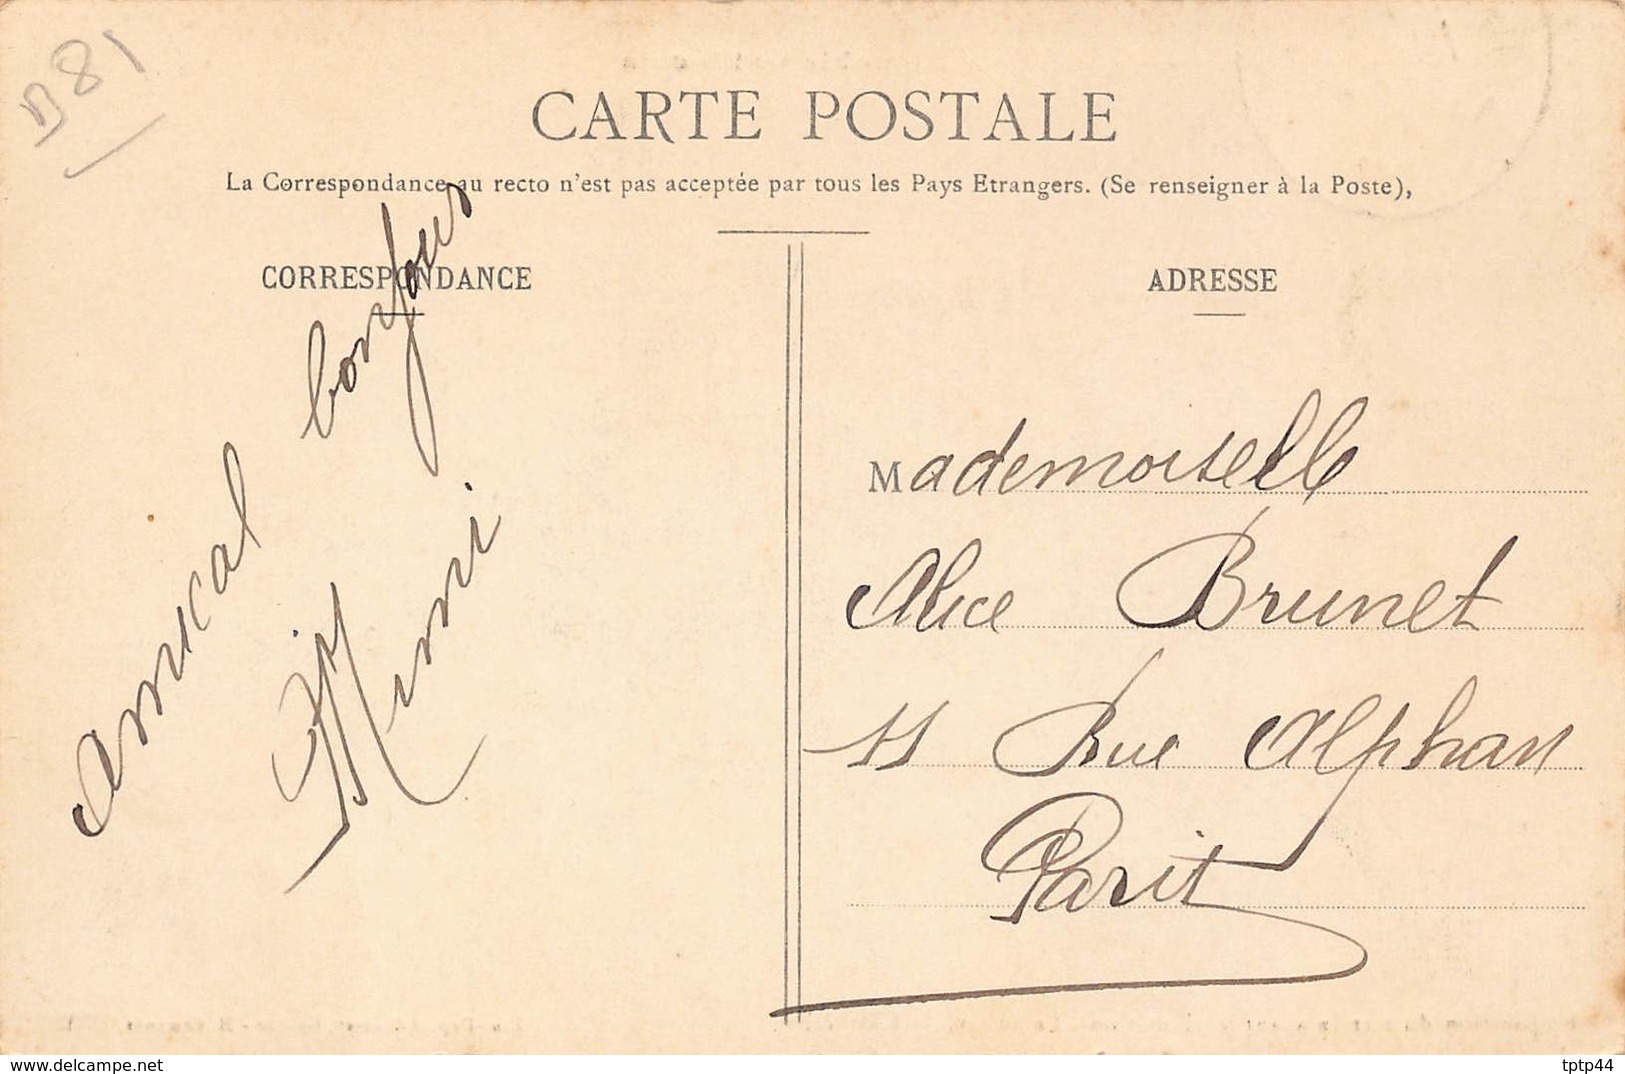 B81
CARTE POSTALE
La Correspondance au recto n'est pas acceptée par tous les Pays Etrangers. (Se renseigner à la Poste),
CORRESPONDANCE
Amical bonjour
Mimi
ADRESSE
Mademoiselle
Alice Brunet
11 Rue Alphan
Paris
www.delcampe.net
tptp44